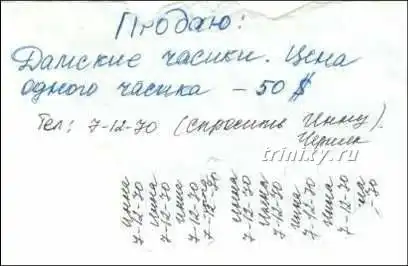 Продаю:
Дамские часики. Цена
одного часика – 50 $
Тел: 7-12-70 (спросить Инну).
trinity.ru
Инна
7-12-70
Инна
7-12-70
Инна
7-12-70
7-12-70
Инна
7-12-70
Инна
7-12-70
Инна
7-12-70
Инна
7-12-70